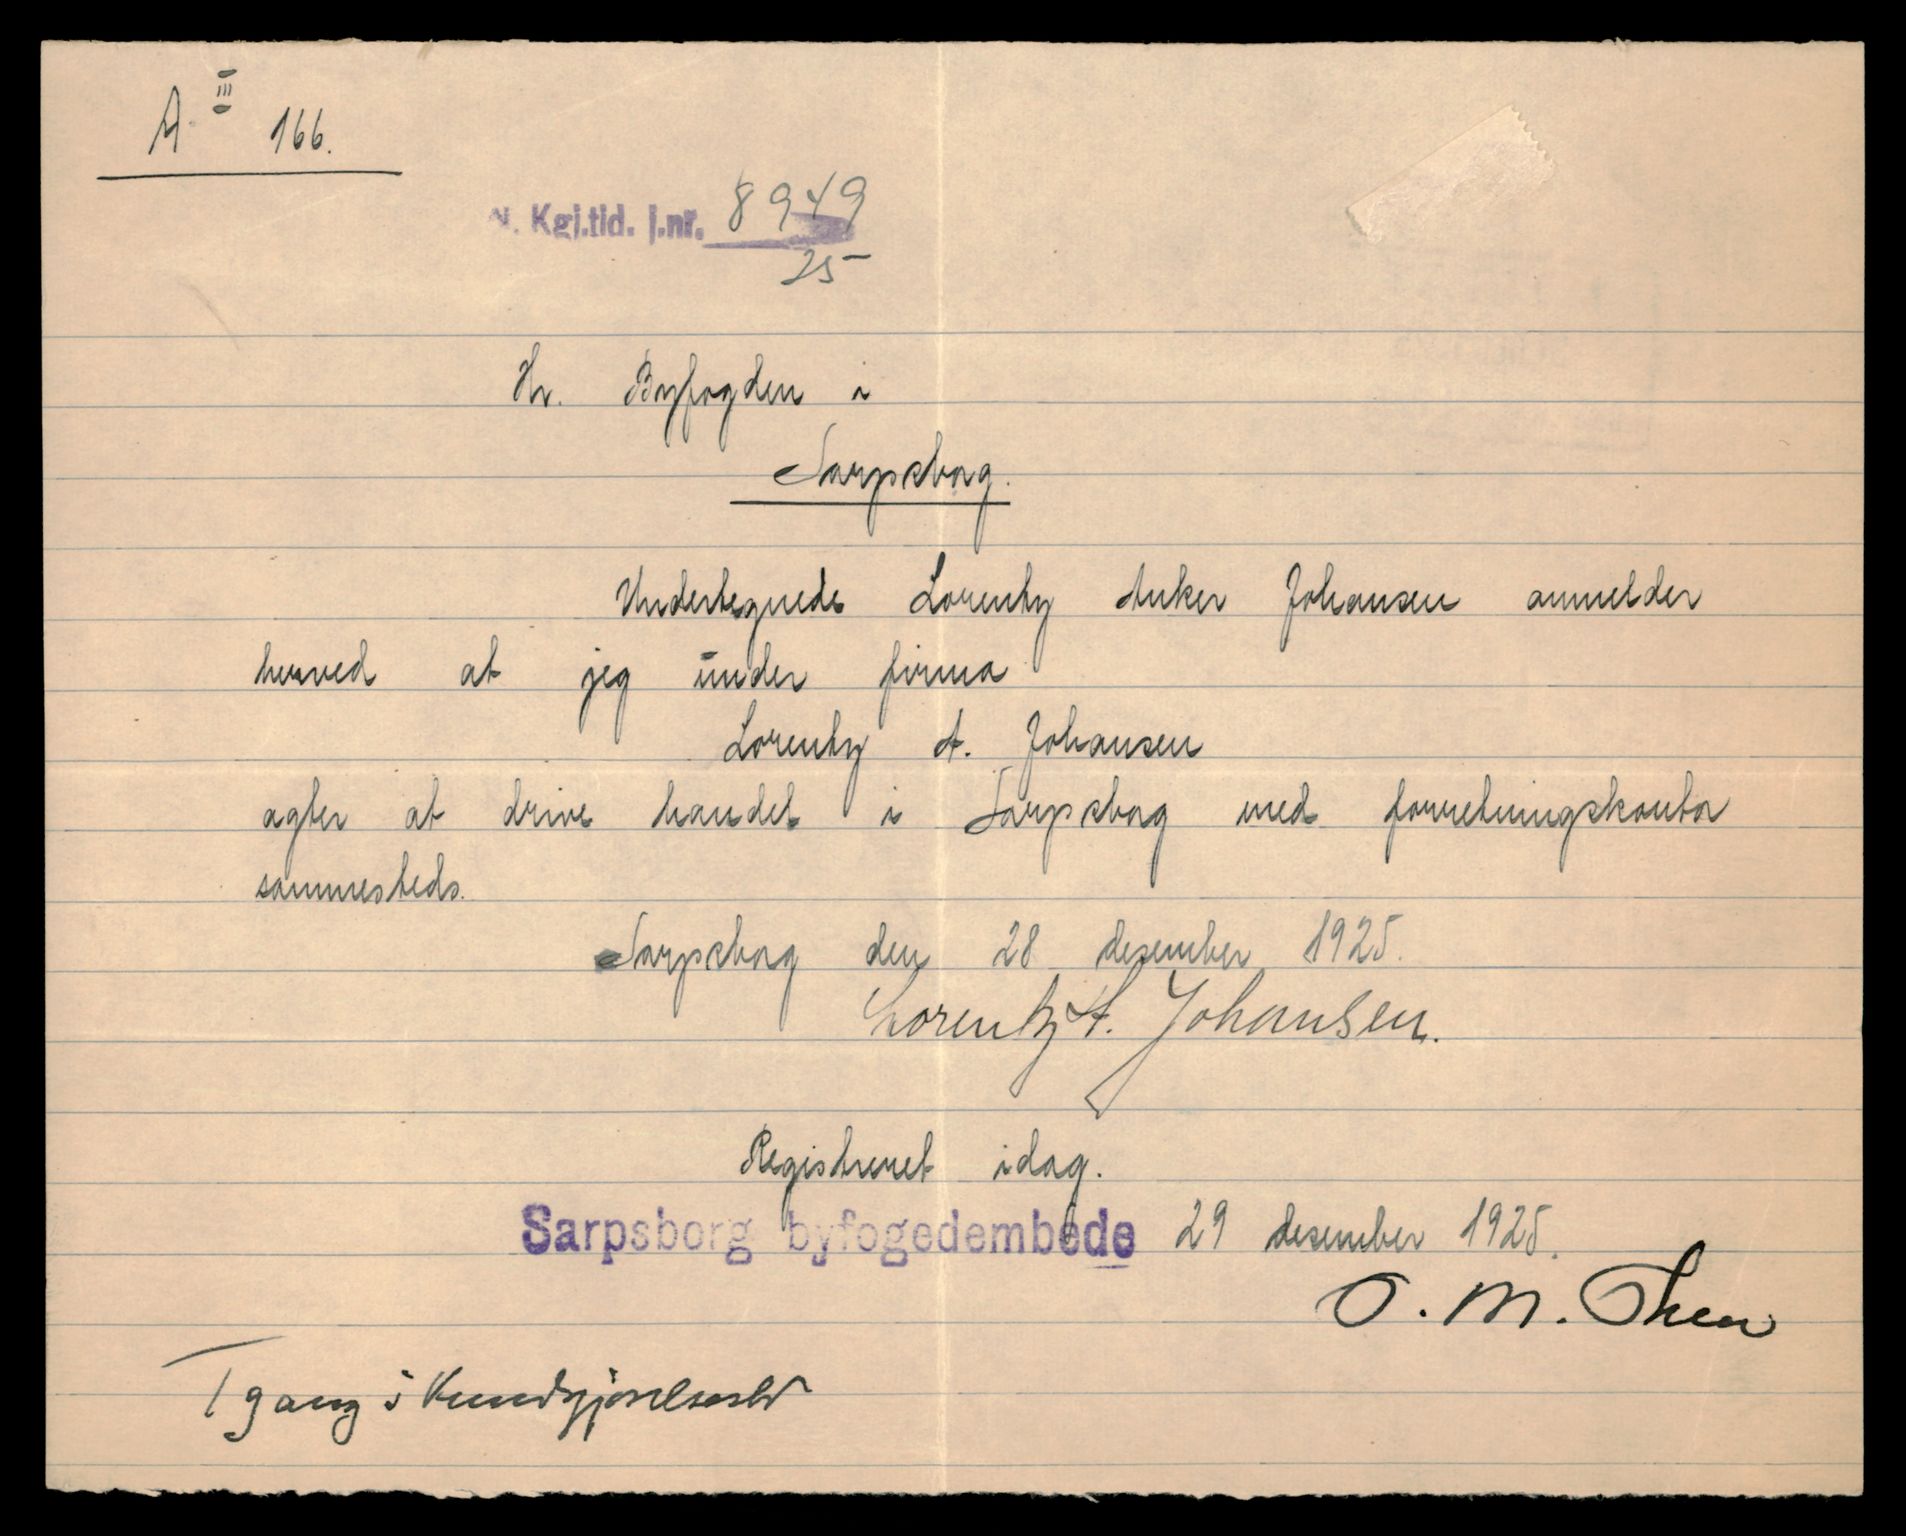 A. III 166.
N. Kgj.tid. j.nr. 8949
25
Hr. Byfogden i
Sarpsborg.
Undertegnede Lorentz Anker Johansen anmelder
herved at jeg under firma
Lorentz A. Johansen
agter at drive handel i Sarpsborg med forretningskontor
sammesteds.
Sarpsborg den 28 desember 1925.
Lorentz A. Johansen.
Registreret idag.
Sarpsborg byfogedembede 29 desember 1925.
O. M.
1 gang i Kundgjørelsestid